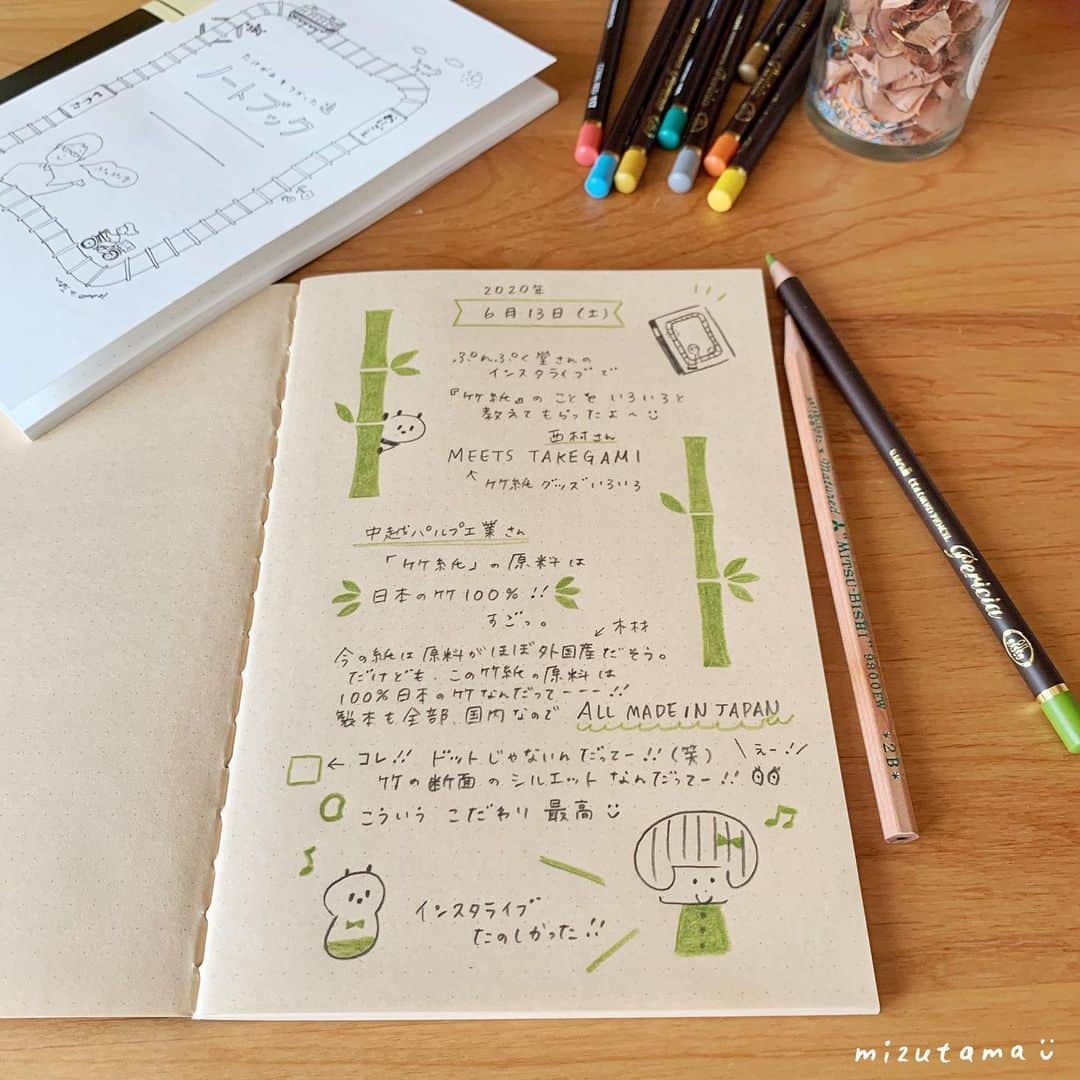 たけがみをつかった
ノートブック
2020年
6月13日(土)
ぷんぷく堂さんの
インスタライブで
『竹紙』のことをいろいろと
教えてもらったよ〜
西村さん
MEETS TAKEGAMI
↖竹紙グッズいろいろ
中越パルプ工業さん
「竹紙」の原料は
日本の竹100%!!
すごっ。
↙木材
今の紙は原料がほぼ外国産だそう。
だけども、この竹紙の原料は
100%日本の竹なんだってーーー!!
製本も全部、国内なので ALL MADE IN JAPAN
← コレ!! ドットじゃないんだってー!!(笑) \えー!/
竹の断面のシルエットなんだってー!!
こういう こだわり 最高
インスタライブ
たのしかった!!
Pericia
"MITSU-BISHI" 9800EW *2B*
mizutama